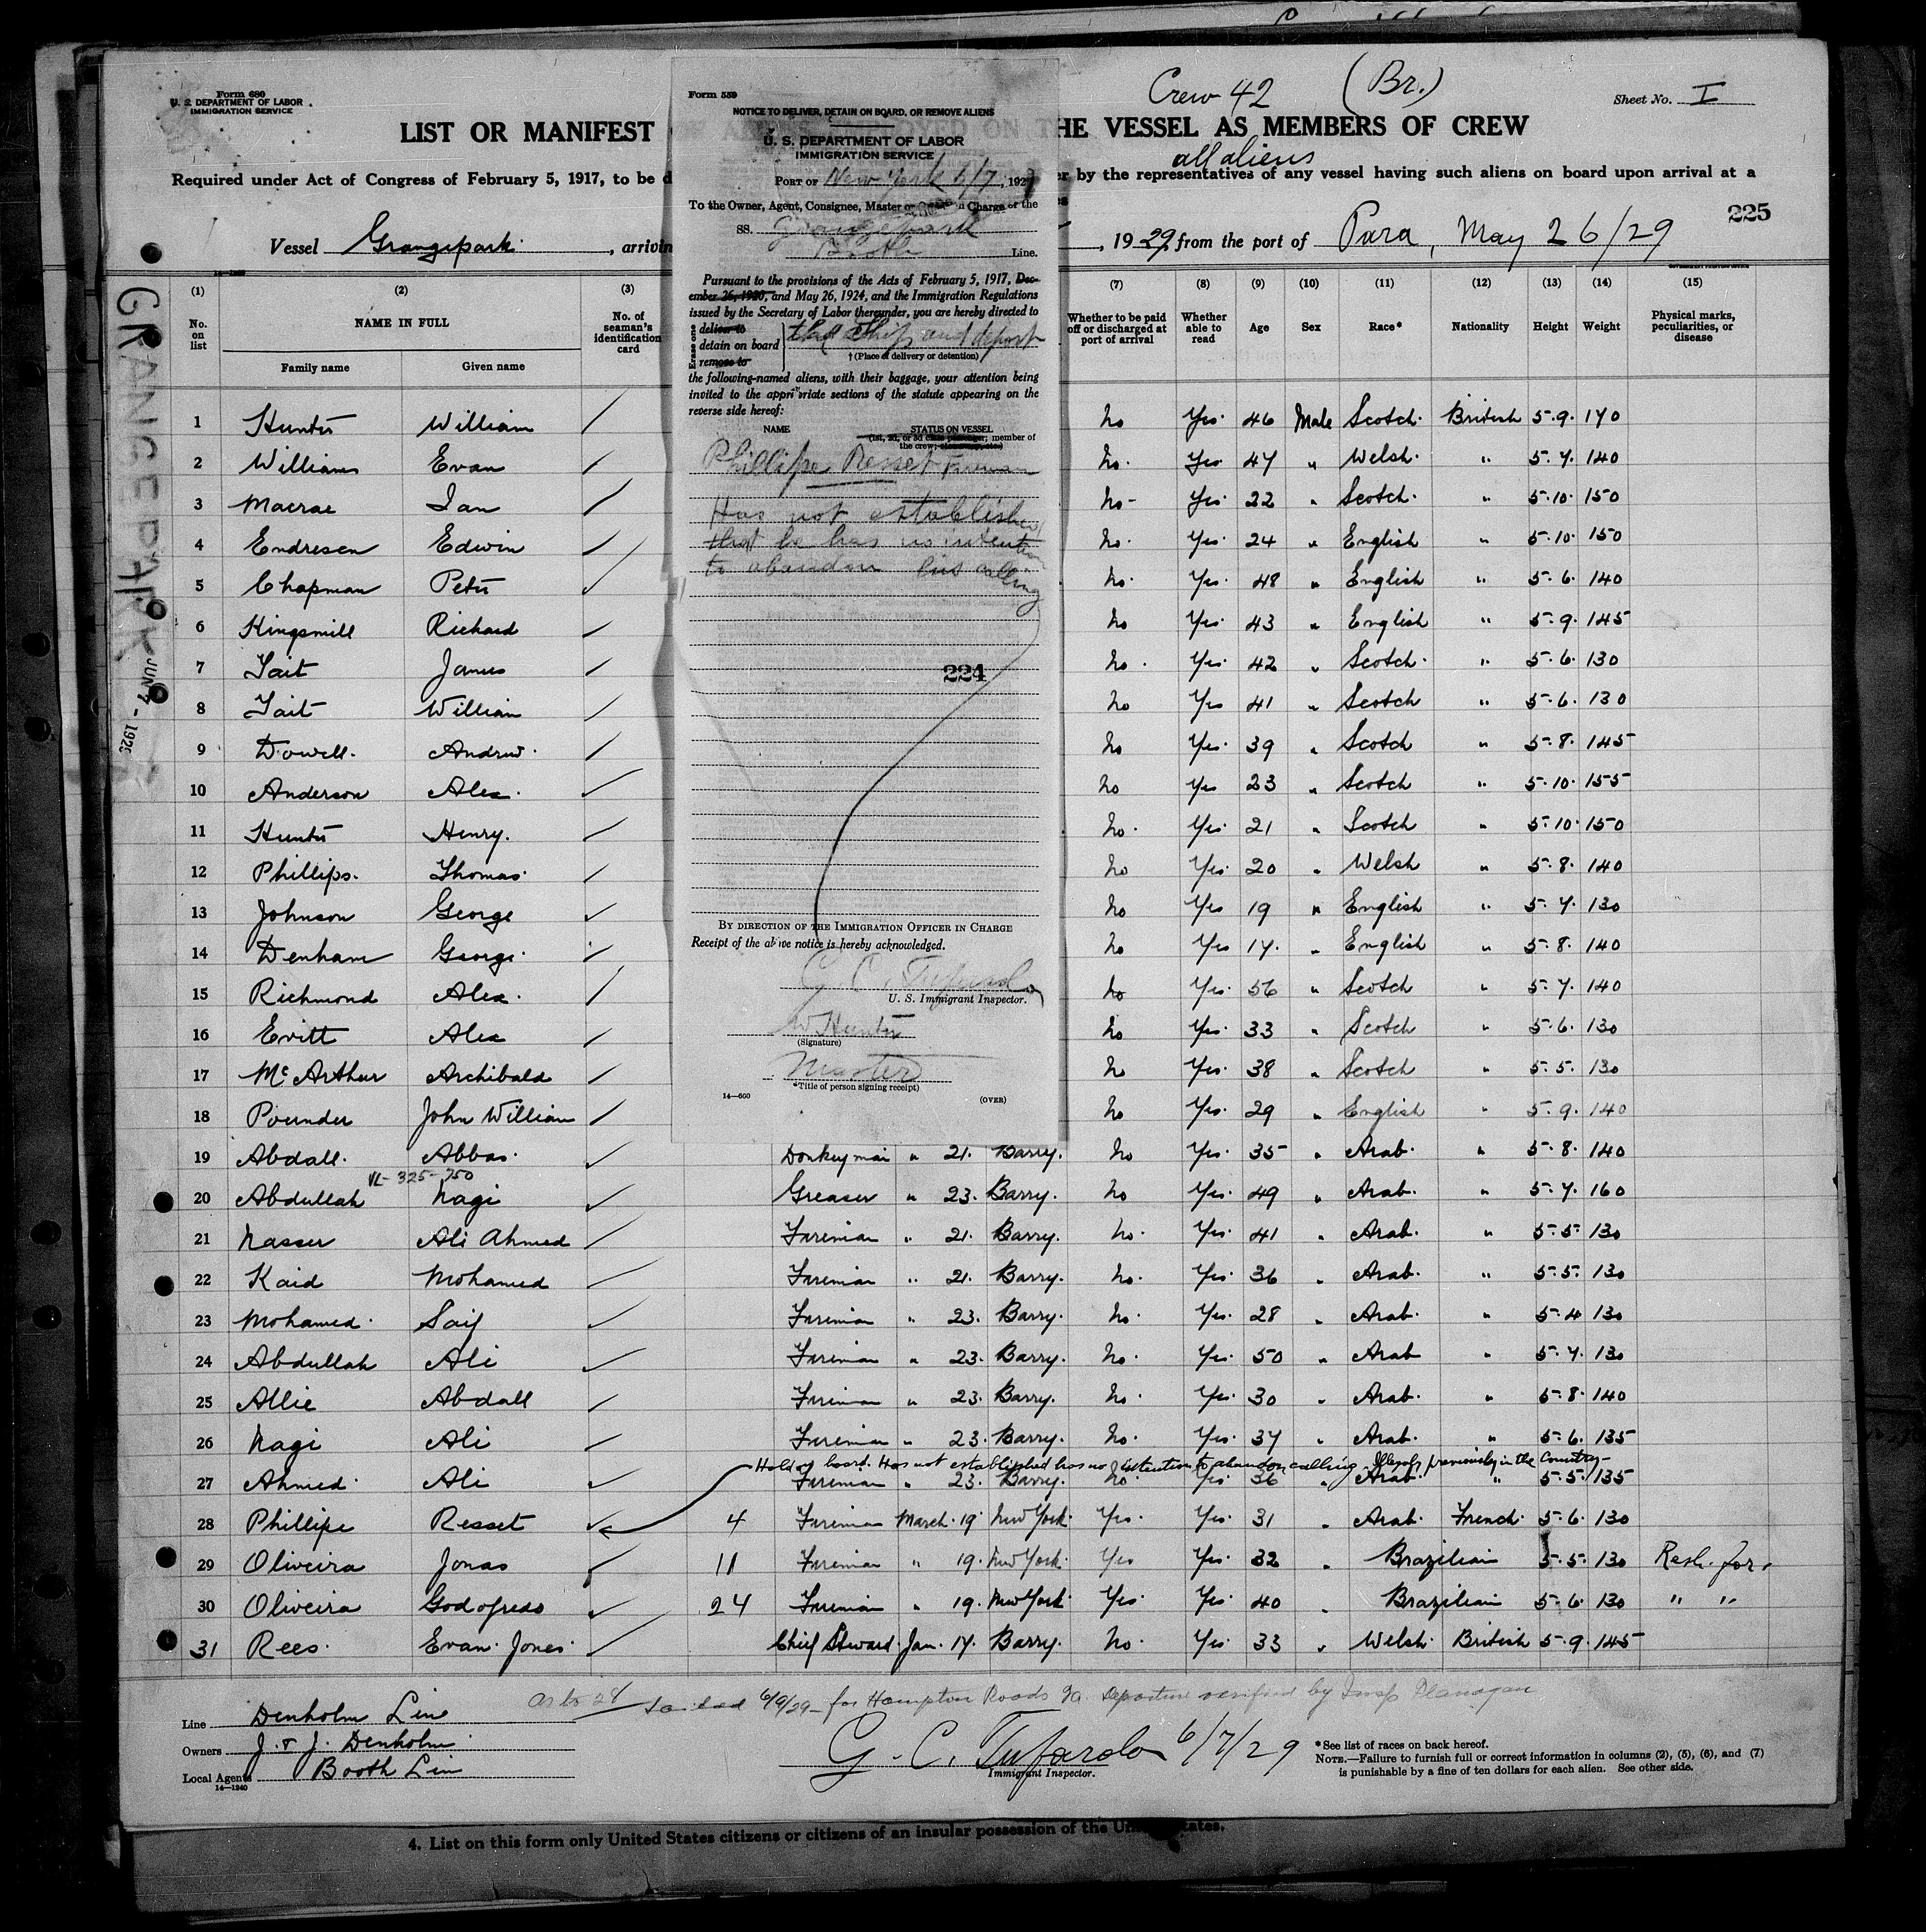 Form 680
U. S. DEPARTMENT OF LABOR
IMMIGRATION SERVICE
Crew 42 (Br.)
Sheet No. I
LIST OR MANIFEST
THE VESSEL AS MEMBERS OF CREW
all aliens
Required under Act of Congress of February 5, 1917, to be d
er by the representatives of any vessel having such aliens on board upon arrival at a
225
Vessel Grangepark, arrivin
, 1929, from the port of Para, May 26/29
GRANGEPARK
JUN 7 - 1929
Form 559
NOTICE TO DELIVER, DETAIN ON BOARD, OR REMOVE ALIENS
U. S. DEPARTMENT OF LABOR
IMMIGRATION SERVICE
PORT OF New York 6/7, 1929
To the Owner, Agent, Consignee, Master or Officer in Charge of the
SS. Grangepark
Booth Line.
Pursuant to the provisions of the Acts of February 5, 1917, Dec-
ember 26, 1920, and May 26, 1924, and the Immigration Regulations
issued by the Secretary of Labor thereunder, you are hereby directed to
Erase one
deliver to
detain on board
remove to
the ship and deport
† (Place of delivery or detention)
the following-named aliens, with their baggage, your attention being
invited to the appropriate sections of the statute appearing on the
reverse side hereof:
NAME STATUS ON VESSEL
(1st, 2d, or 3d class passenger; member of
the crew; stowaway, etc.)
Phillipe Resset Fireman
Has not established
that he has no intention
to abandon his calling
224
BY DIRECTION OF THE IMMIGRATION OFFICER IN CHARGE
Receipt of the above notice is hereby acknowledged.
G. C. Tufarolo
U. S. Immigrant Inspector.
W Hunter
(Signature)
Master
*Title of person signing receipt)
14—600
(OVER)
14—1240
(1) (2) (3) (7) (8) (9) (10) (11) (12) (13) (14) (15)
No. on list
NAME IN FULL
Family name Given name
No. of seaman's identification card
Whether to be paid off or discharged at port of arrival
Whether able to read
Age
Sex
Race*
Nationality
Height
Weight
Physical marks, peculiarities, or disease
GOVERNMENT PRINTING OFFICE
1 Hunter William no Yes 46 Male Scotch British 5.9. 170
2 Williams Evan no. Yes 47 " Welsh. " 5.7. 140
3 Macrae Ian no- Yes 22 " Scotch. " 5.10. 150
4 Endresen Edwin no. Yes 24 " English " 5.10. 150
5 Chapman Peter no. Yes. 48 " English " 5.6. 140
6 Kingsmill Richard no Yes. 43 " English " 5.9. 145
7 Tait James no. Yes. 42 " Scotch. " 5.6. 130
8 Tait William no Yes 41 " Scotch " 5.6. 130
9 Dowell. Andrew. no Yes. 39 " Scotch " 5.8. 145
10 Anderson Alex. no Yes 23 " Scotch " 5.10. 155
11 Hunter Henry. no. Yes. 21 " Scotch " 5.10. 150
12 Phillips. Thomas. no Yes. 20 " Welsh " 5.8. 140
13 Johnson George no Yes 19 " English " 5.7. 130
14 Denham George. no Yes 17. " English " 5.8. 140
15 Richmond Alex. no Yes. 56 " Scotch " 5.7. 140
16 Evitt Alex no Yes. 33 " Scotch " 5.6. 130
17 McArthur Archibald no Yes. 38 " Scotch " 5.5. 130
18 Pounder John William no Yes. 29 " English " 5.9. 140
19 Abdall. Abbas. Donkeyman " 21. Barry. no Yes. 35 " Arab. " 5.8. 140
VL- 325-750
20 Abdullah Nagi Greaser " 23. Barry. no Yes. 49 " Arab. " 5.7. 160
21 Nasser Ali Ahmed Fireman " 21. Barry. no. Yes. 41 " Arab. " 5.5. 130
22 Kaid Mohamed Fireman " 21. Barry. no. Yes. 36 " Arab. " 5.5. 130
23 Mohamed. Saif Fireman " 23. Barry. no. Yes. 28 " Arab. " 5.4 130
24 Abdullah Ali Fireman " 23. Barry. no. Yes. 50 " Arab " 5.7. 130
25 Allie Abdall Fireman " 23. Barry. no. Yes. 30 " Arab. " 5.8. 140
26 Nagi Ali Fireman " 23. Barry. no. Yes. 37 " Arab. " 5.6. 135
Hold on board. Has not established has no intention to abandon calling. Illegally previously in the Country-
27 Ahmed. Ali Fireman " 23. Barry. no. Yes. 36 " Arab. " 5.5. 135
28 Phillipe Resset 4 Fireman March. 19 New York. Yes. Yes. 31 " Arab. French. 5.6. 130
29 Oliveira Jonas 11 Fireman " 19. New York. Yes Yes. 32 " Brazilian 5.5. 130 Resh. for.
30 Oliveira Godofredo 24 Fireman " 19. New York. Yes. Yes. 40 " Brazilian 5.6. 130 " "
31 Rees. Evan Jones. Chief Steward. Jan. 17. Barry. no. Yes. 33 " Welsh. British 5.9. 145
As to 28 Sailed 6/9/29 - for Hampton Roads Va. Departure verified by Insp Flanagan
Line Denholm Line
Owners J. & J. Denholm.
Local Agents Booth Line
14—1240
G. C. Tufarolo 6/7/29
Immigrant Inspector.
*See list of races on back hereof.
NOTE.—Failure to furnish full or correct information in columns (2), (5), (6), and (7)
is punishable by a fine of ten dollars for each alien. See other side.
4. List on this form only United States citizens or citizens of an insular possession of the United States.